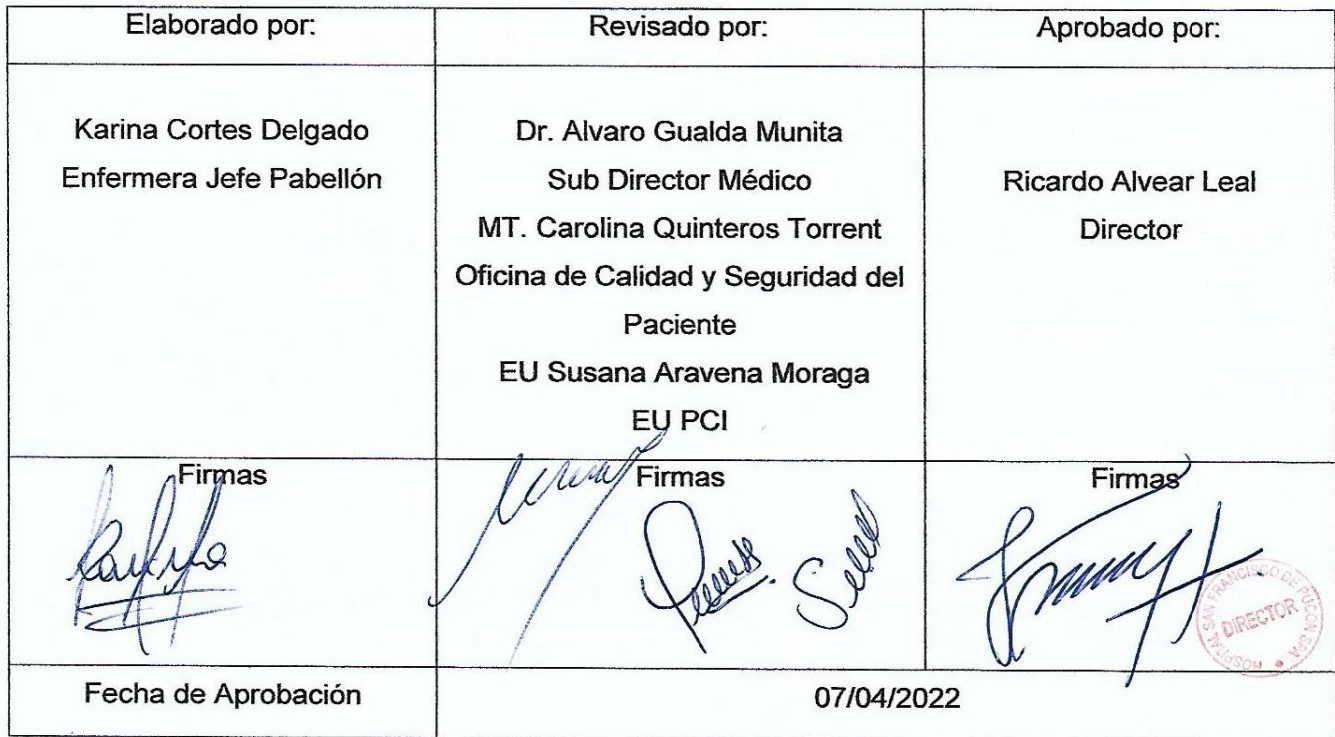 Elaborado por:
Revisado por:
Aprobado por:
Karina Cortes Delgado
Enfermera Jefe Pabellón
Dr. Alvaro Gualda Munita
Sub Director Médico
MT. Carolina Quinteros Torrent
Oficina de Calidad y Seguridad del
Paciente
EU Susana Aravena Moraga
EU PCI
Ricardo Alvear Leal
Director
Firmas
Firmas
Firmas
HOSPITAL SAN FRANCISCO DE PUCON SPA
DIRECTOR
Fecha de Aprobación
07/04/2022